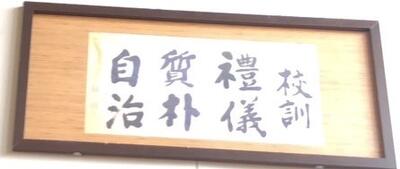 校訓
禮儀
質朴
自治